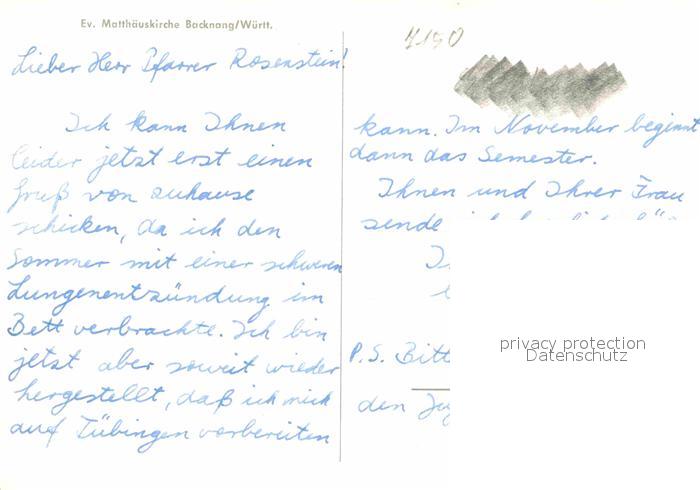 Ev. Matthäuskirche Backnang/Württ.
Lieber Herr Pfarrer Rosenstein!
Ich kann Ihnen
leider jetzt erst einen
Gruß von zuhause
schicken, da ich den
Sommer mit einer schweren
Lungenentzündung im
Bett verbrachte. Ich bin
jetzt aber soweit wieder
hergestellt, daß ich mich
auf Tübingen vorbereiten
7150
kann. Im November beginnt
dann das Semester.
Ihnen und Ihrer Frau
sende
P.S. Bitt
den
privacy protection
Datenschutz